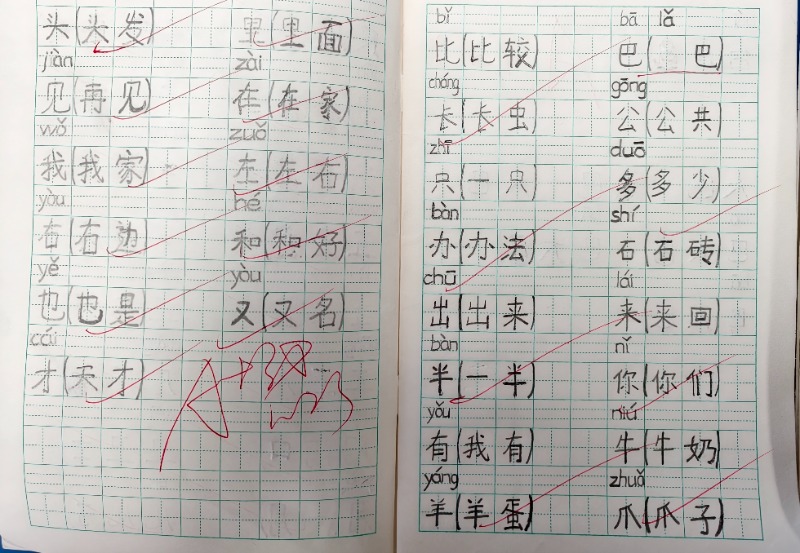 头(头发) 里(里面)
jiàn zài
见(再见) 在(在家)
wǒ zuǒ
我(我家) 左(左右)
yòu hé
右(右边) 和(和好)
yě yòu
也(也是) 又(又名)
cái
才(天才)
bǐ bā lǎ
比(比较) 巴( 巴)
cháng gōng
长(长虫) 公(公共)
zhī duō
只(一只) 多(多少)
bàn shí
办(办法) 石(石砖)
chū lái
出(出来) 来(来回)
bàn nǐ
半(一半) 你(你们)
yǒu niú
有(我有) 牛(牛奶)
yáng zhuǎ
羊(羊蛋) 爪(爪子)